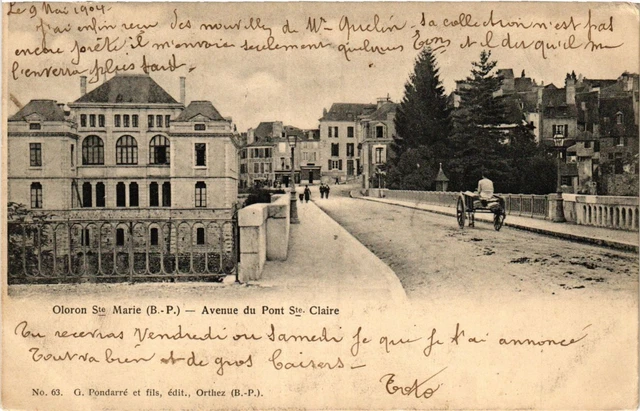 Le 9 Mai 1904.
J'ai enfin reçu des nouvelles de Mr Quelin. sa collection n'est pas
encore prête il m'envoie seulement quelques et il dit qu'il me
l'enverra plus tard.
Oloron Ste Marie (B.-P.) — Avenue du Pont Ste. Claire
Tu recevras Vendredi ou Samedi je que je t'ai annoncé
Tout va bien et de gros baisers —
Toto
No. 63. G. Pondarré et fils, édit., Orthez (B.-P.).